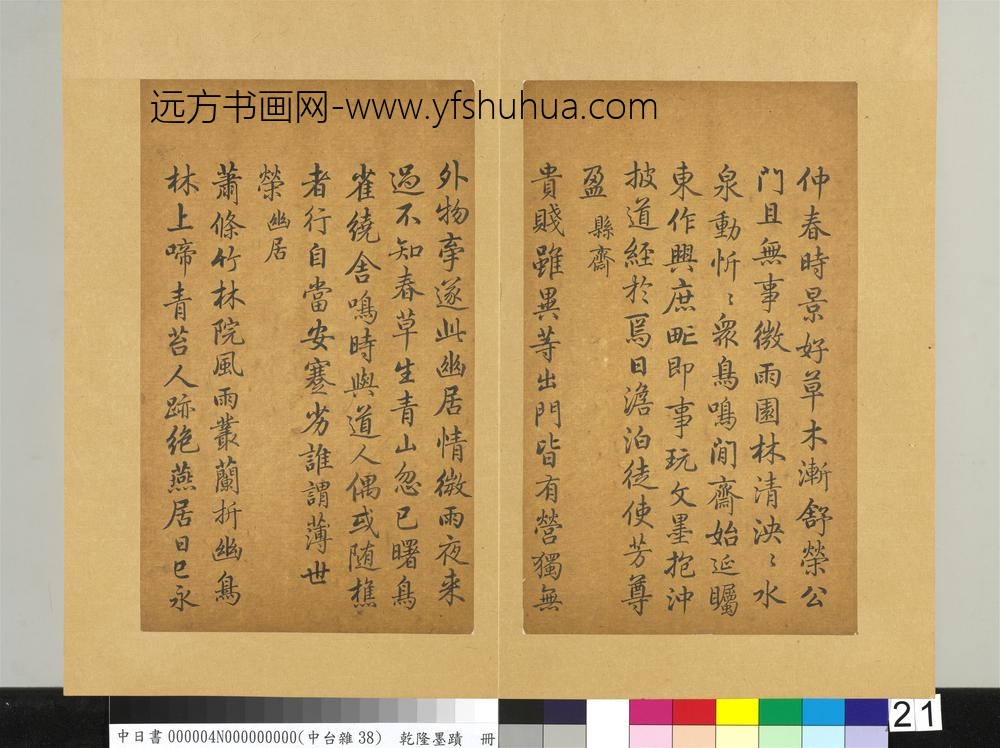 远方书画网-www.yfshuhua.com
仲春時景好草木漸舒榮公
門且無事微雨園林清泱〻水
泉動忻〻衆鳥鳴閒齋始延矚
東作興庶甿即事玩文墨抱沖
披道經於焉日澹泊徒使芳尊
盈 縣齋
貴賤雖異等出門皆有營獨無
外物牽遂此幽居情微雨夜来
過不知春草生青山忽已曙鳥
雀繞舍鳴時與道人偶或随樵
者行自當安蹇劣誰謂薄世
榮 幽居
蕭條竹林院風雨叢蘭折幽鳥
林上啼青苔人跡绝燕居日已永
中日書 000004N000000000(中台雜 38) 乾隆墨蹟 冊
21